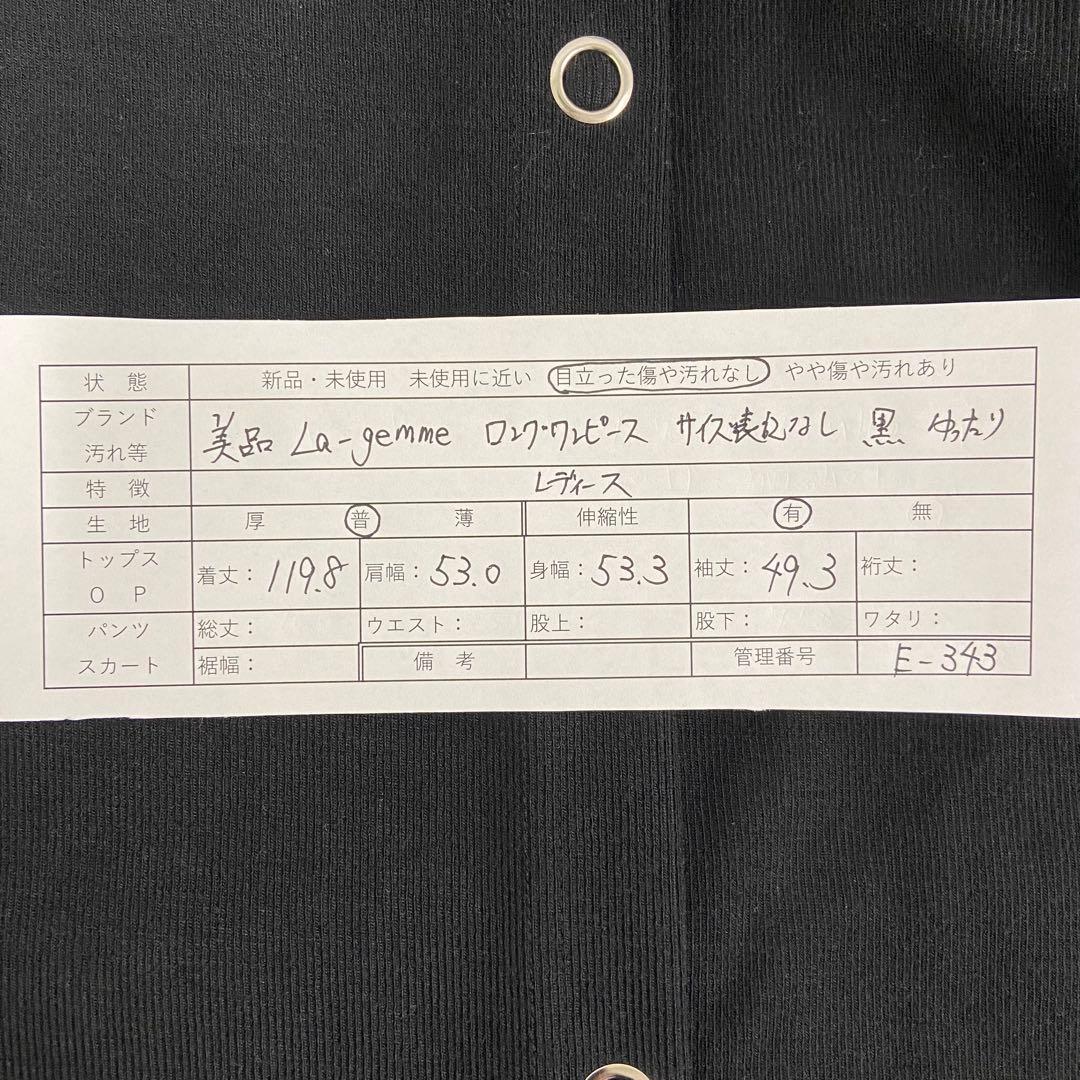 状態 新品・未使用 未使用に近い 目立った傷や汚れなし やや傷や汚れあり
ブランド 汚れ等 美品 La-gemme ロングワンピース サイズ表記なし 黒 ゆったり
特徴 レディース
生地 厚 普 薄 伸縮性 有 無
トップス OP 着丈：119.8 肩幅：53.0 身幅：53.3 袖丈：49.3 裄丈：
パンツ 総丈： ウエスト： 股上： 股下： ワタリ：
スカート 裾幅： 備考 管理番号 E-343